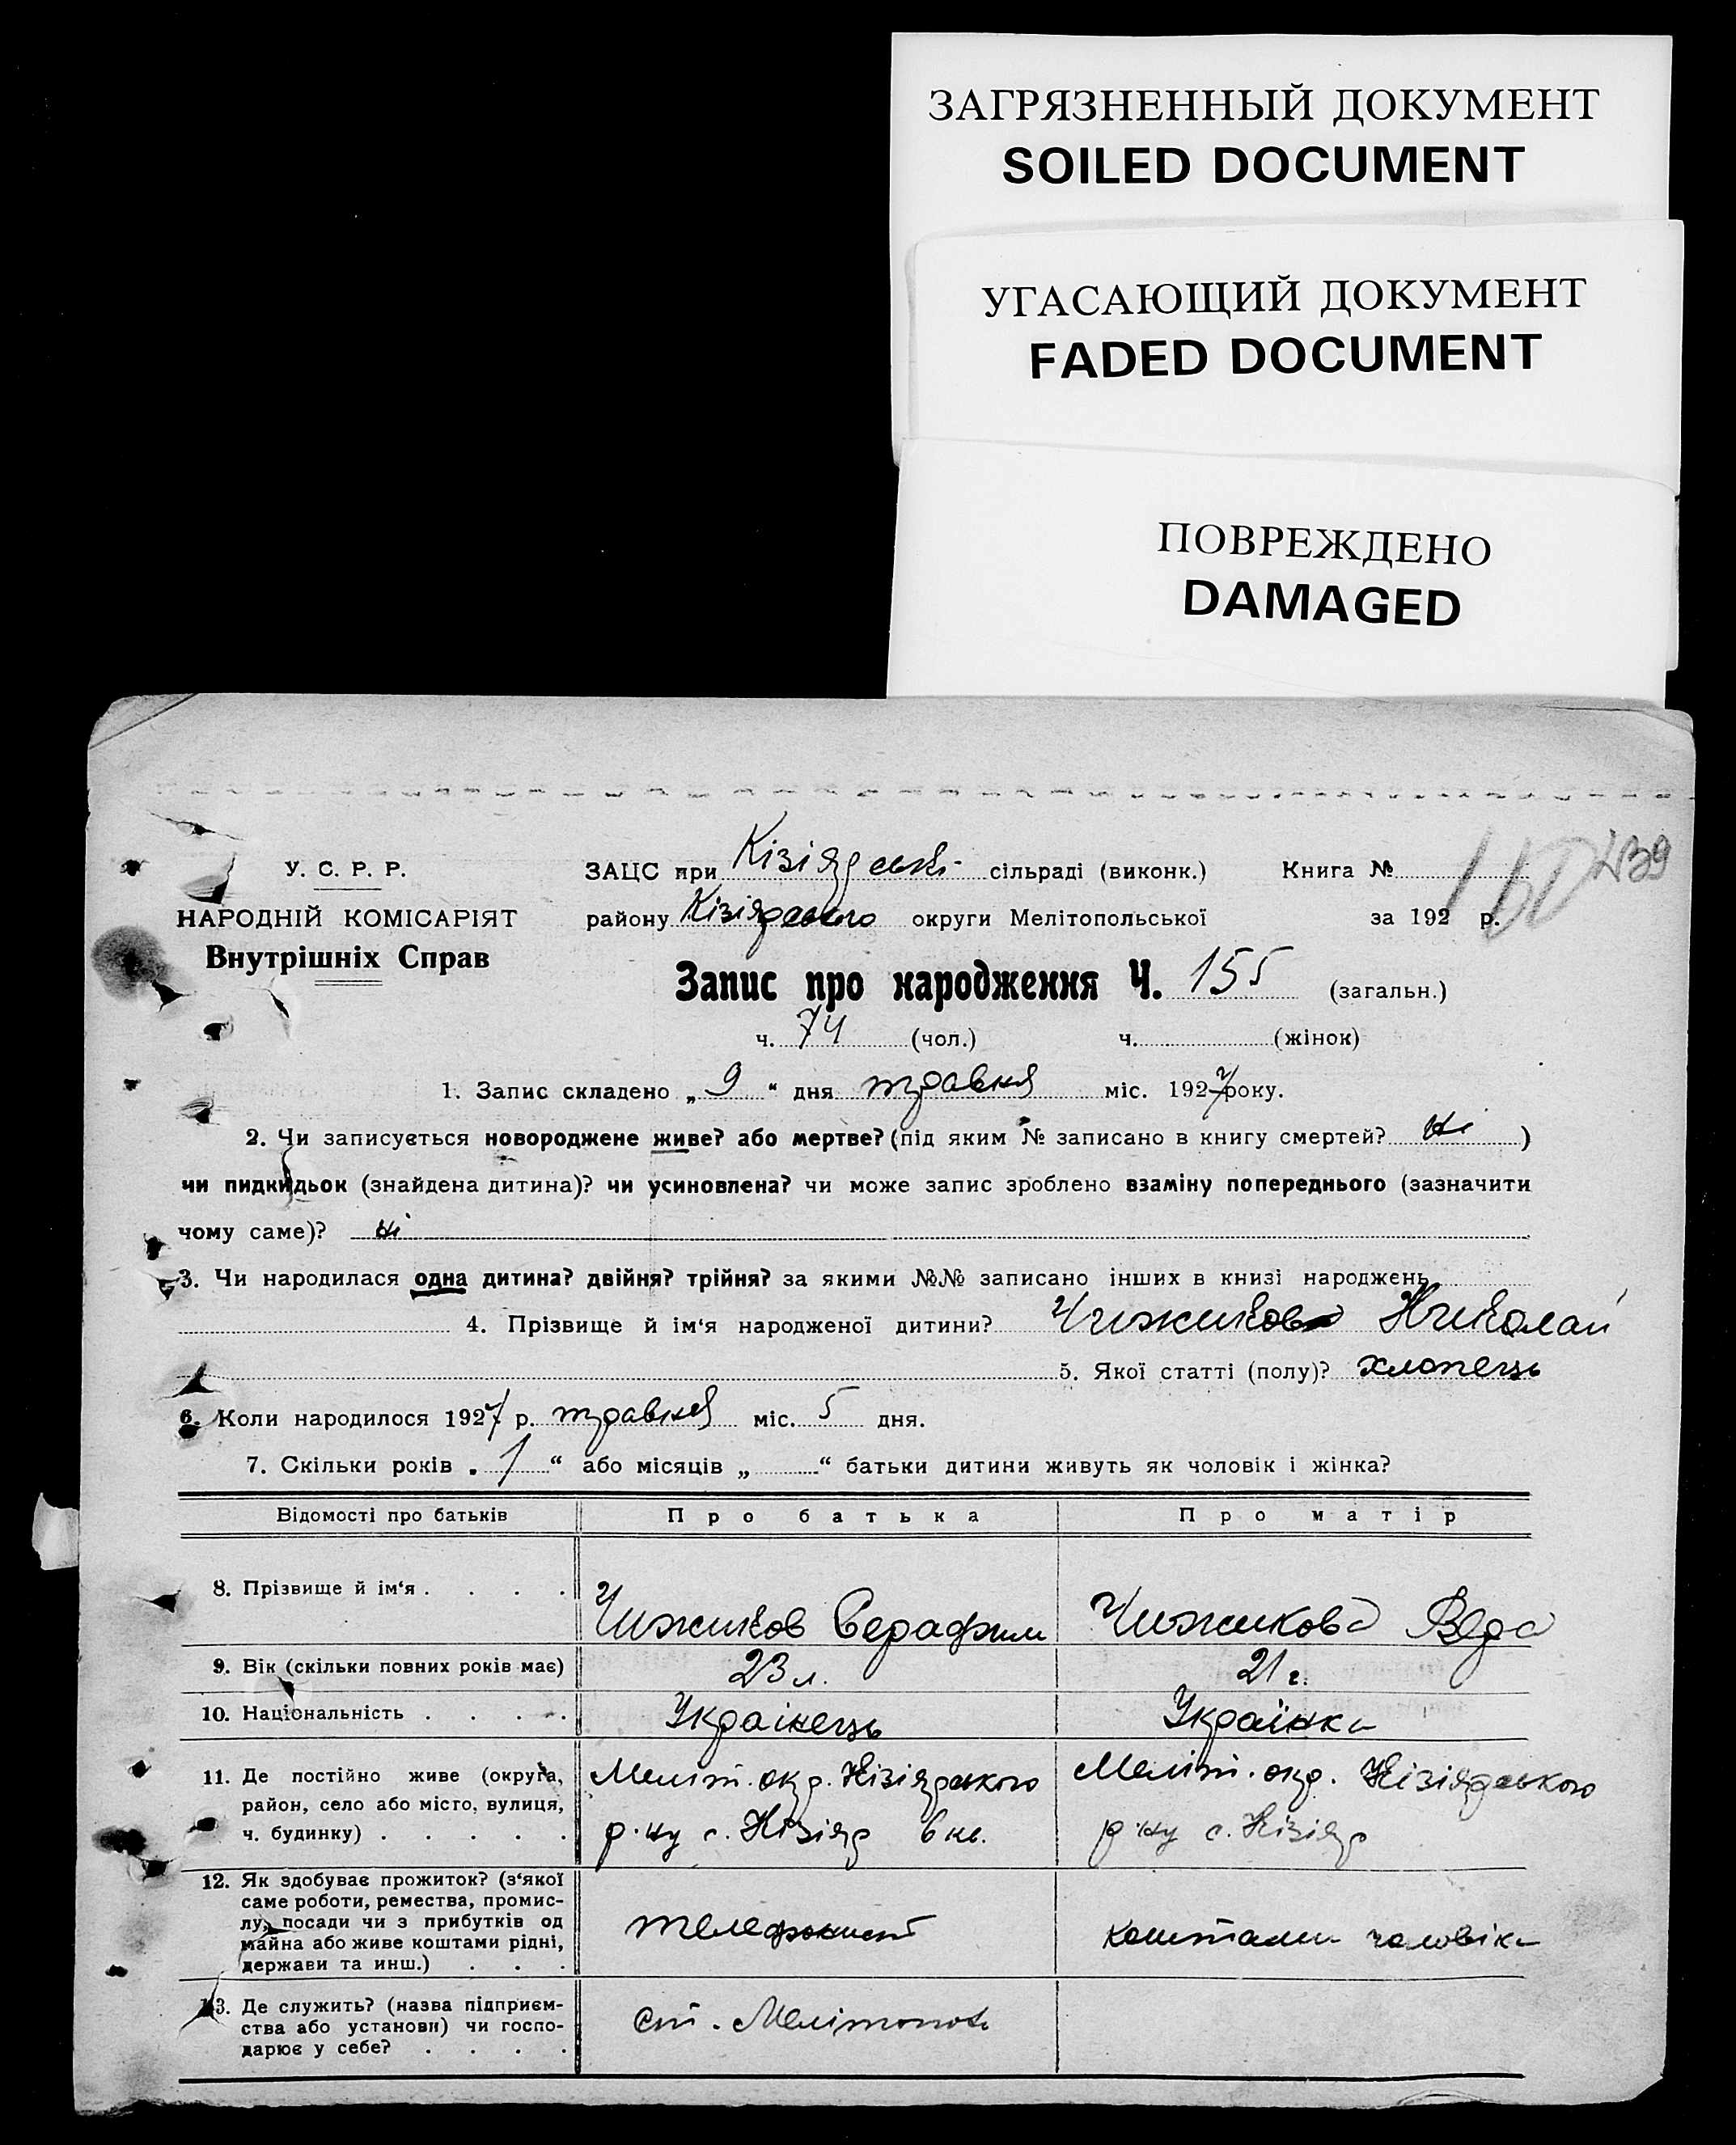 ЗАГРЯЗНЕННЫЙ ДОКУМЕНТ
SOILED DOCUMENT
УГАСАЮЩИЙ ДОКУМЕНТ
FADED DOCUMENT
ПОВРЕЖДЕНО
DAMAGED
У. С. Р. Р.
НАРОДНІЙ КОМІСАРІЯТ
Внутрішніх Справ
ЗАЦС при Кізіярській сільраді (виконк.) Книга №
160 239
району Кізіярського округи Мелітопольської за 192 р.
Запис про народження Ч. 155 (загальн.)
ч. 74 (чол.) ч. (жінок)
1. Запис складено „ 9 “ дня травня міс. 1927 року.
2. Чи записується новороджене живе? або мертве? (під яким № записано в книгу смертей? Ні )
чи пидкидьок (знайдена дитина)? чи усиновлена? чи може запис зроблено взаміну попереднього (зазначити
чому саме)? Ні
3. Чи народилася одна дитина? двійня? трійня? за якими №№ записано інших в книзі народжень
4. Прізвище й ім‘я народженої дитини? Чижиков Николай
5. Якої статті (полу)? хлопець
6. Коли народилося 1927 р. травня міс. 5 дня.
7. Скільки років „ 1 “ або місяців „ “ батьки дитини живуть як чоловік і жінка?
Відомості про батьків Про батька Про матір
8. Прізвище й ім‘я . . . . Чижиков Серафим Чижикова Вера
9. Вік (скільки повних років має) 23 л. 21 г.
10. Національність . . . . Українець Українка
11. Де постійно живе (округа, район, село або місто, вулиця, ч. будинку) . . . . .
Меліт. окр. Кізіярського
р-ну с. Кізіяр 6 кв.
Меліт. окр. Кізіярського
р-ну с. Кізіяр
12. Як здобуває прожиток? (з‘якої
саме роботи, ремества, промис-
лу, посади чи з прибутків од
майна або живе коштами рідні,
держави та инш.) . . .
телефонист коштами чоловіка
13. Де служить? (назва підприєм-
ства або установи) чи госпо-
дарює у себе? . . . .
ст. Мелітополь